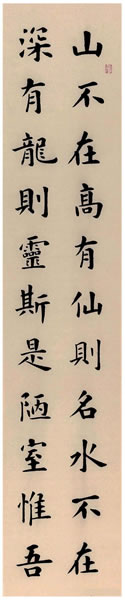 山不在高有仙則名水不在
深有龍則靈斯是陋室惟吾